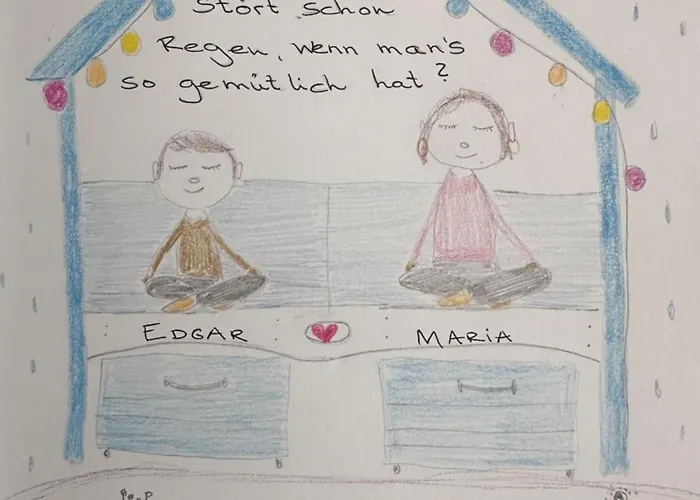 Stört schon
Regen, wenn man's
so gemütlich hat?
EDGAR MARIA